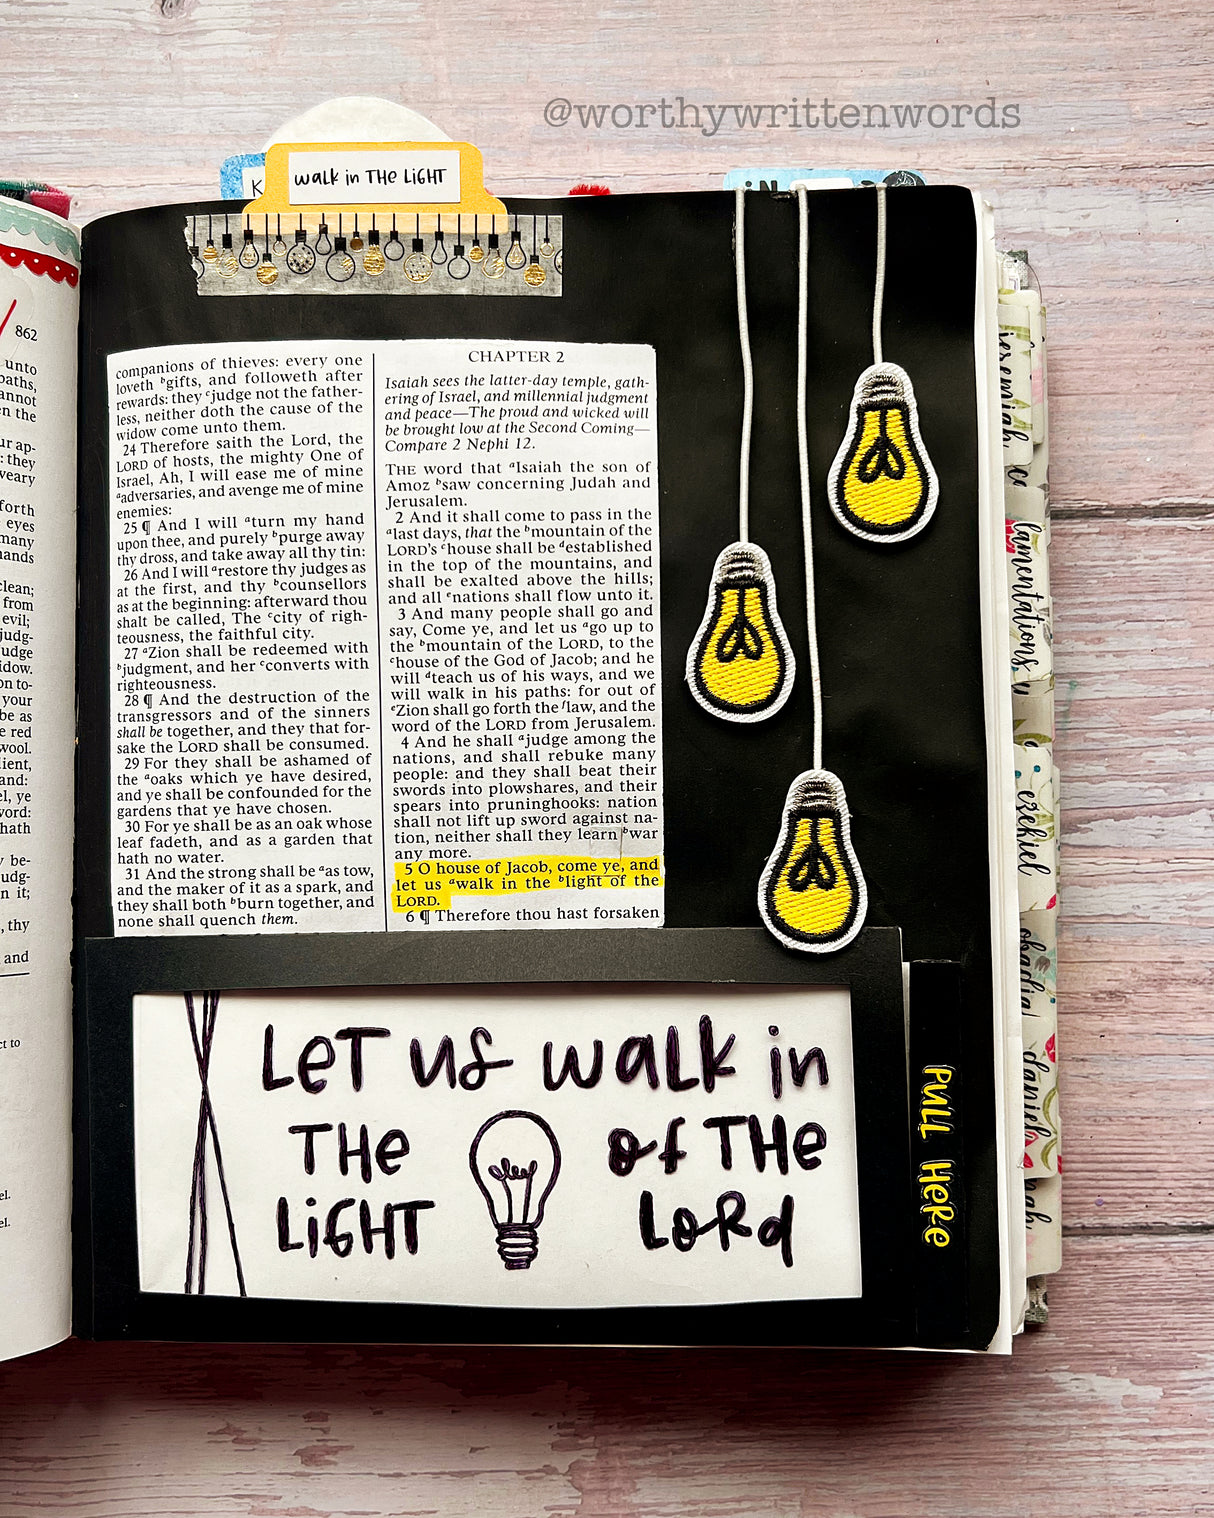 @worthywrittenwords
K
walk in THE LiGHT
iN
862
unto
paths,
annot
en the
ur ap-
: they
weary
forth
eyes
many
hands
clean;
from
evil;
judg-
judge
idow.
on to-
your
be as
e red
wool.
dient,
and:
el, ye
word:
hath
y be-
judg-
n it;
, thy
and
ct to
el.
el.
companions of thieves: every one
loveth ᵇgifts, and followeth after
rewards: they ᶜjudge not the father-
less, neither doth the cause of the
widow come unto them.
24 Therefore saith the Lord, the
LORD of hosts, the mighty One of
Israel, Ah, I will ease me of mine
ᵃadversaries, and avenge me of mine
enemies:
25 ¶ And I will ᵃturn my hand
upon thee, and purely ᵇpurge away
thy dross, and take away all thy tin:
26 And I will ᵃrestore thy judges as
at the first, and thy ᵇcounsellors
as at the beginning: afterward thou
shalt be called, The ᶜcity of righ-
teousness, the faithful city.
27 ᵃZion shall be redeemed with
ᵇjudgment, and her ᶜconverts with
righteousness.
28 ¶ And the destruction of the
transgressors and of the sinners
shall be together, and they that for-
sake the LORD shall be consumed.
29 For they shall be ashamed of
the ᵃoaks which ye have desired,
and ye shall be confounded for the
gardens that ye have chosen.
30 For ye shall be as an oak whose
leaf fadeth, and as a garden that
hath no water.
31 And the strong shall be ᵃas tow,
and the maker of it as a spark, and
they shall both ᵇburn together, and
none shall quench them.
CHAPTER 2
Isaiah sees the latter-day temple, gath-
ering of Israel, and millennial judgment
and peace—The proud and wicked will
be brought low at the Second Coming—
Compare 2 Nephi 12.
THE word that ᵃIsaiah the son of
Amoz ᵇsaw concerning Judah and
Jerusalem.
2 And it shall come to pass in the
ᵃlast days, that the ᵇmountain of the
LORD's ᶜhouse shall be ᵈestablished
in the top of the mountains, and
shall be exalted above the hills;
and all ᵉnations shall flow unto it.
3 And many people shall go and
say, Come ye, and let us ᵃgo up to
the ᵇmountain of the LORD, to the
ᶜhouse of the God of Jacob; and he
will ᵈteach us of his ways, and we
will walk in his paths: for out of
ᵉZion shall go forth the ᶠlaw, and the
word of the LORD from Jerusalem.
4 And he shall ᵃjudge among the
nations, and shall rebuke many
people: and they shall beat their
swords into plowshares, and their
spears into pruninghooks: nation
shall not lift up sword against na-
tion, neither shall they learn ᵇwar
any more.
5 O house of Jacob, come ye, and
let us ᵃwalk in the ᵇlight of the
LORD.
6 ¶ Therefore thou hast forsaken
LeT us walk in
THe
LiGHT
of THe
LoRd
PULL HeRe
jeremiah
lamentations
ezekiel
obadiah
daniel